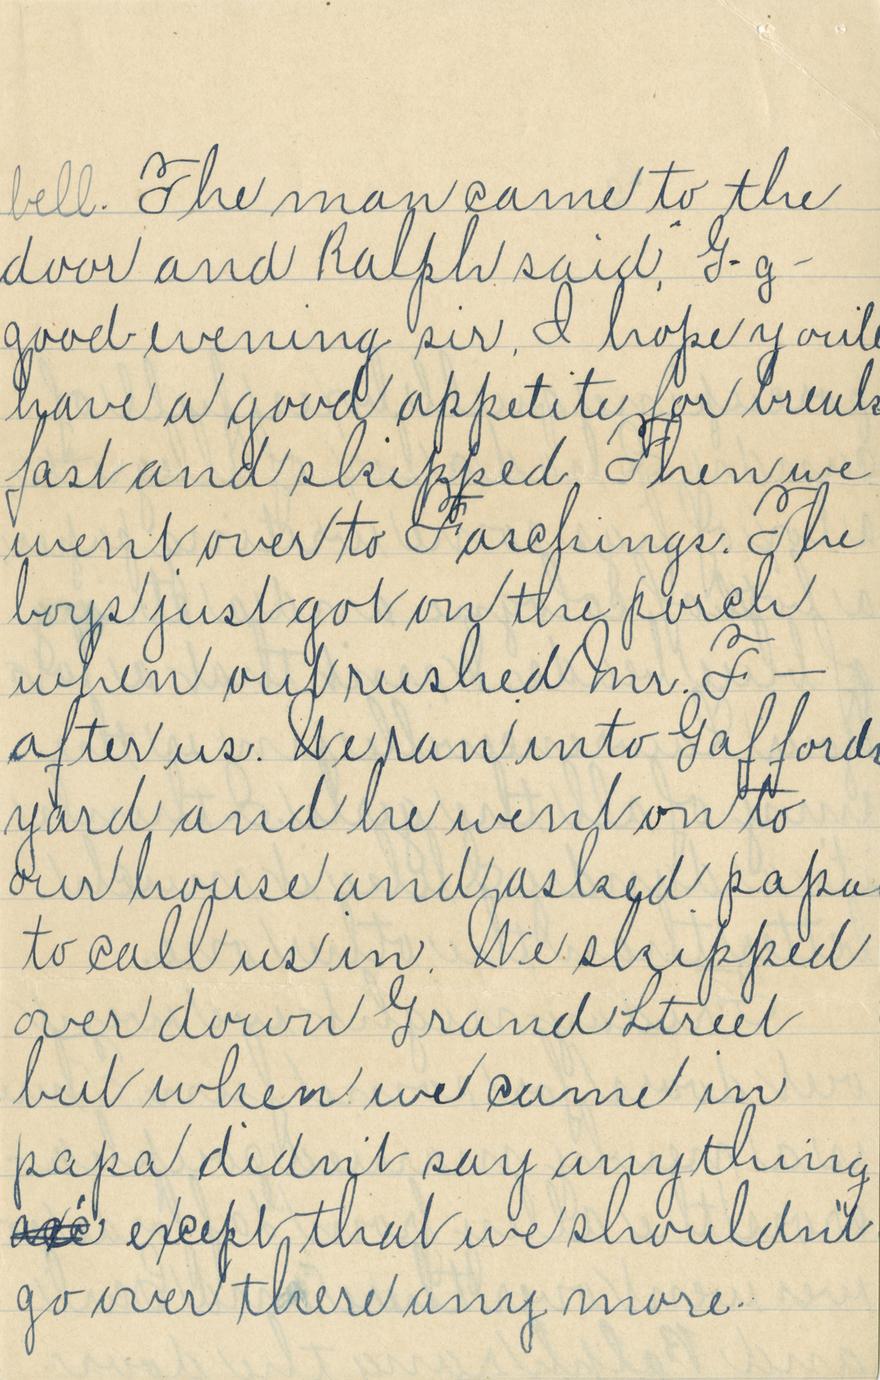 bell. The man came to the
door and Ralph said, "G-g-
good-evening sir, I hope youll
have a good appetite for break
fast and skipped. Then we
went over to Faschings. The
boys just got on the porch
when out rushed Mr. F—
after us. We ran into Gaffords
yard and he went on to
our house and asked papa
to call us in. We skipped
over down Grand Street
but when we came in
papa didn't say anything
except that we shouldn't
go over there any more.